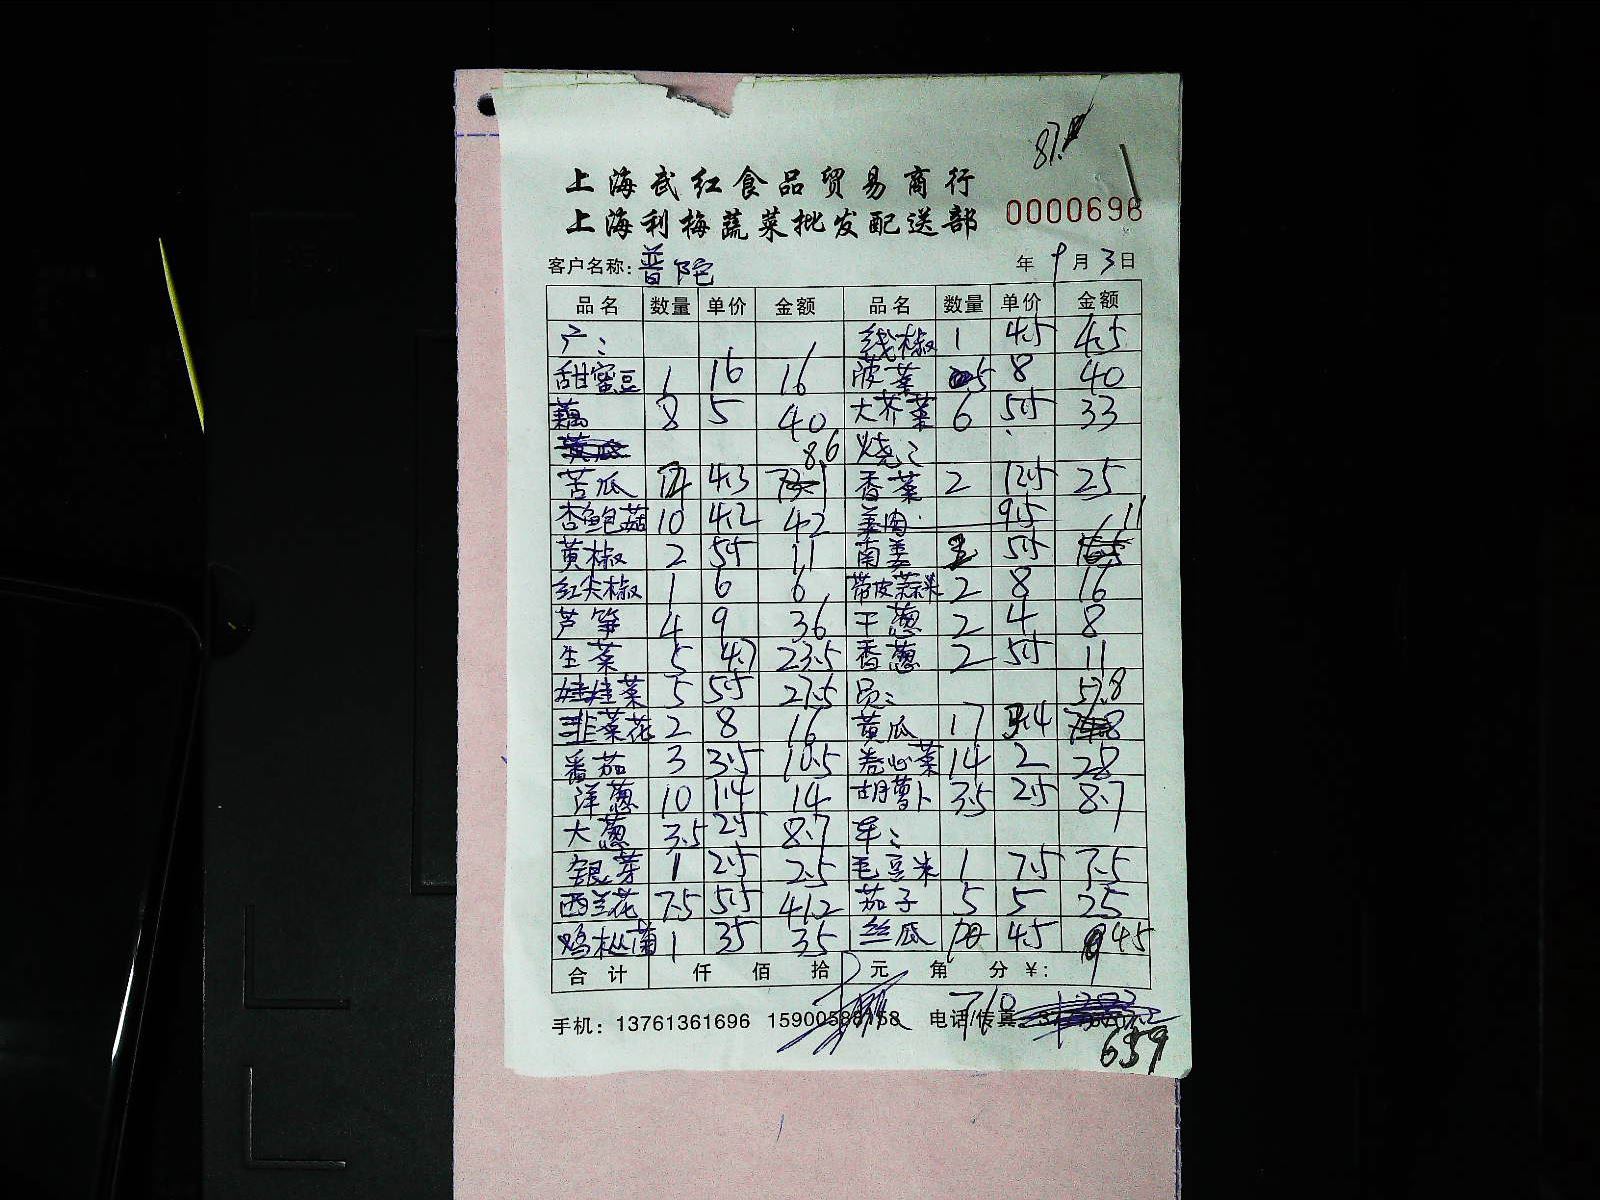 上海武红食品贸易商行
上海利梅蔬菜批发配送部
0000696
客户名称: 普陀 年 9 月 3 日
品名 数量 单价 金额 品名 数量 单价 金额
广: 线椒 1 4.5 4.5
甜蜜豆 1 16 16 菠菜 5 8 40
藕 8 5 40 大芥菜 6 5.5 33
黄瓜 8.6 烧:
苦瓜 4.3 香菜 2 12.5 25
杏鲍菇 10 4.2 42 姜肉 9.5 11
黄椒 2 5.5 11 南姜 5.5
红尖椒 1 6 6 带皮蒜米 2 8 16
芦笋 4 9 36 干葱 2 4 8
生菜 5 4.7 23.5 香葱 2 5.5 11
娃娃菜 5 5.5 27.5 员: 57.8
韭菜花 2 8 16 黄瓜 17 3.4
番茄 3 3.5 10.5 卷心菜 14 2 28
洋葱 10 1.4 14 胡萝卜 3.5 2.5 8.7
大葱 3.5 2.5 8.7 车:
银芽 1 2.5 2.5 毛豆米 1 7.5 7.5
西兰花 7.5 5.5 41.2 茄子 5 5 25
鸡枞菌 1 35 35 丝瓜 10 4.5 45
合计 仟 佰 拾 元 角 分 ¥:
手机: 13761361696 电话/传真 710
659